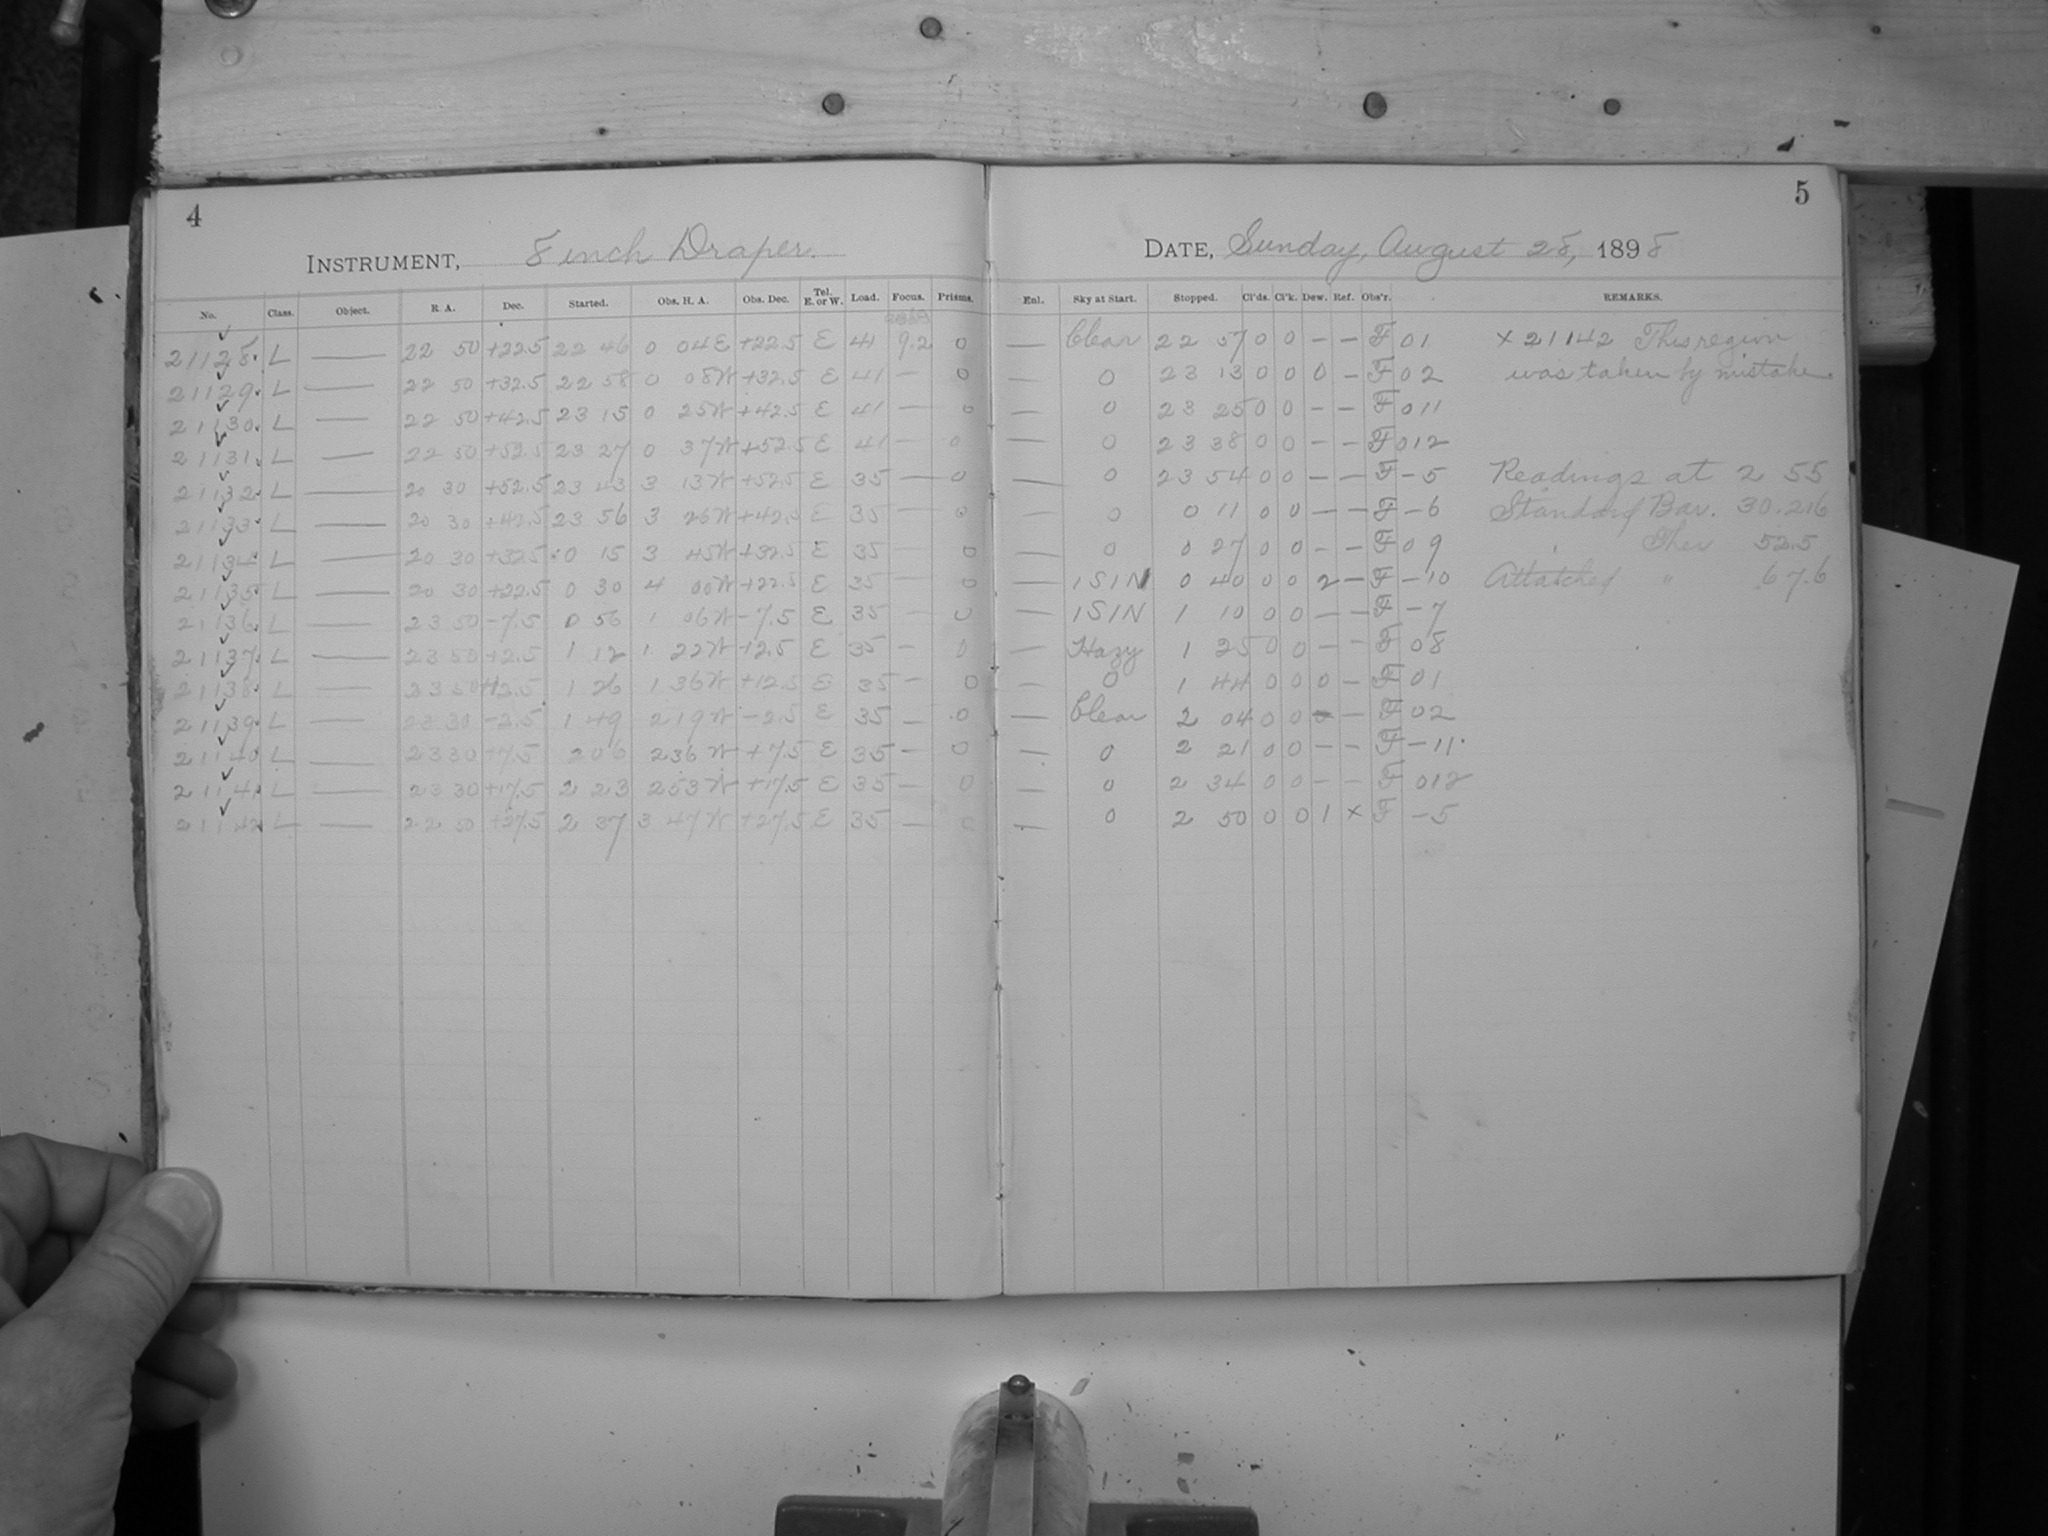 4
INSTRUMENT, 8 inch Draper.
No. Class. Object. R. A. Dec. Started. Obs. H. A. Obs. Dec. Tel. E. or W. Load. Focus. Prisms.
21128. L — 22 50 +22.5 22 46 0 04E +22.5 E 41 9.2 0
21129. L — 22 50 +32.5 22 58 0 08W +32.5 E 41 — 0
21130. L — 22 50 +42.5 23 15 0 25W +42.5 E 41 — 0
21131. L — 22 50 +52.5 23 27 0 37W +52.5 E 41 — 0
21132. L — 20 30 +52.5 23 43 3 13W +52.5 E 35 — 0
21133. L — 20 30 +42.5 23 56 3 26W +42.5 E 35 — 0
21134. L — 20 30 +32.5 0 15 3 45W +32.5 E 35 — 0
21135. L — 20 30 +22.5 0 30 4 00W +22.5 E 35 — 0
21136. L — 23 50 -7.5 0 56 1 06W -7.5 E 35 — 0
21137. L — 23 50 +2.5 1 12 1 22W +2.5 E 35 — 0
21138. L — 23 50 +12.5 1 26 1 36W +12.5 E 35 — 0
21139. L — 23 30 -2.5 1 49 2 19W -2.5 E 35 — 0
21140 L — 23 30 +7.5 2 06 2 36W +7.5 E 35 — 0
21141. L — 23 30 +17.5 2 23 2 53W +17.5 E 35 — 0
21142 L — 22 50 +27.5 2 37 3 47W +27.5 E 35 — 0
5
DATE, Sunday, August 28, 1898
Enl. Sky at Start. Stopped. Cl'ds. Cl'k. Dew. Ref. Obs'r. REMARKS.
— Clear 22 57 0 0 — — F 01 x 21142 This region
— 0 23 13 0 0 0 — F 02 was taken by mistake.
— 0 23 25 0 0 — — F 011
— 0 23 38 0 0 — — F 012
— 0 23 54 0 0 — — F -5 Readings at 2 55
— 0 0 11 0 0 — — F -6 Standard Bar. 30.216
— 0 0 27 0 0 — — F 09 Ther 52.5
— 1S1N 0 40 0 0 2 — F -10 Attatched " 67.6
— 1S1N 1 10 0 0 — — F -7
— Hazy 1 25 0 0 — — F 08
— 0 1 44 0 0 0 — F 01
— Clear 2 04 0 0 0 — F 02
— 0 2 21 0 0 — — F -11
— 0 2 34 0 0 — — F 012
— 0 2 50 0 0 1 x F -5